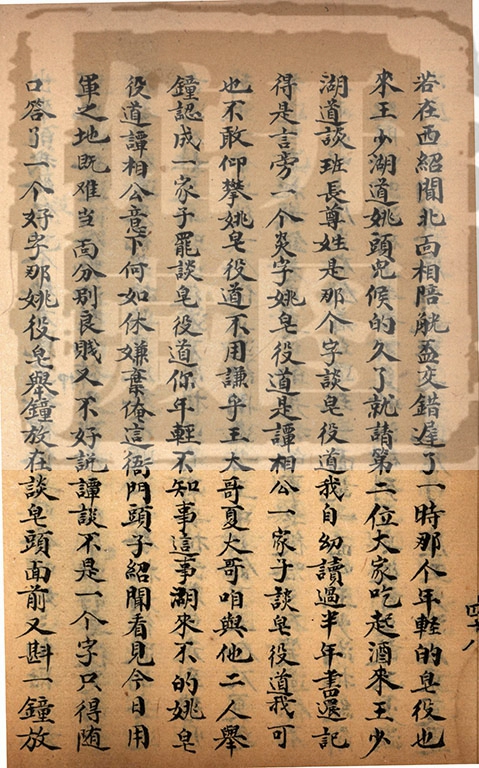 若在西紹聞北面相陪觥盃交錯遲了一時那个年輕的皂役也
來王少湖道姚頭兒候的久了就請第二位大家吃起酒來王少
湖道談班長尊姓是那个字談皂役道我自幼讀過半年書還記
得是言旁一个炎字姚皂役道是譚相公一家子談皂役道我可
也不敢仰攀姚皂役道不用謙乎王大哥夏大哥咱與他二人舉
鐘認成一家子罷談皂役道你年輕不知事這事湖來不的姚皂
役道譚相公意下何如休嫌棄俺這衙門頭子紹聞看見今日用
軍之地既难当面分别良賎又不好說譚談不是一个字只得随
口答了一个好字那姚役皂舉鐘放在談皂頭面前又斟一鐘放
四十八